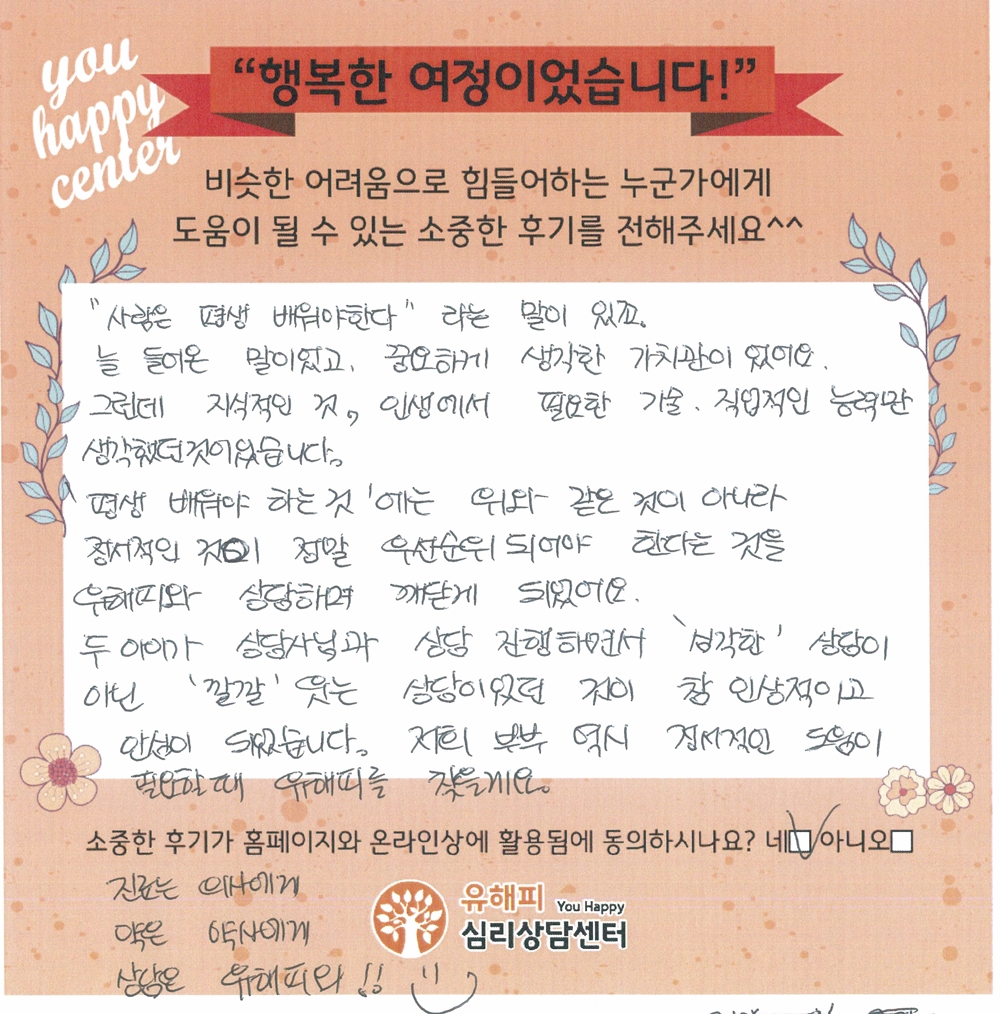 you
happy
center
“행복한 여정이었습니다!”
비슷한 어려움으로 힘들어하는 누군가에게
도움이 될 수 있는 소중한 후기를 전해주세요^^
"사람은 평생 배워야한다" 라는 말이 있죠.
늘 들어온 말이었고, 중요하게 생각한 가치관이었어요.
그런데 지식적인 것, 인생에서 필요한 기술. 직업적인 능력만
생각했던것이었습니다.
평생 배워야 하는것'에는 위와 같은 것이 아니라
정서적인 것이 정말 우선순위 되어야 한다는 것을
유해피와 상담하며 깨닫게 되었어요.
두 아이가 상담사님과 상담 진행하면서 '심각한' 상담이
아닌 '깔깔' 웃는 상담이었던 것이 참 인상적이고
안심이 되었습니다. 저희 부부 역시 정서적인 도움이
필요할때 유해피를 찾을게요.
소중한 후기가 홈페이지와 온라인상에 활용됨에 동의하시나요? 네 아니오
진료는 의사에게
약은 약사에게
상담은 유해피와!!
유해피 You Happy
심리상담센터